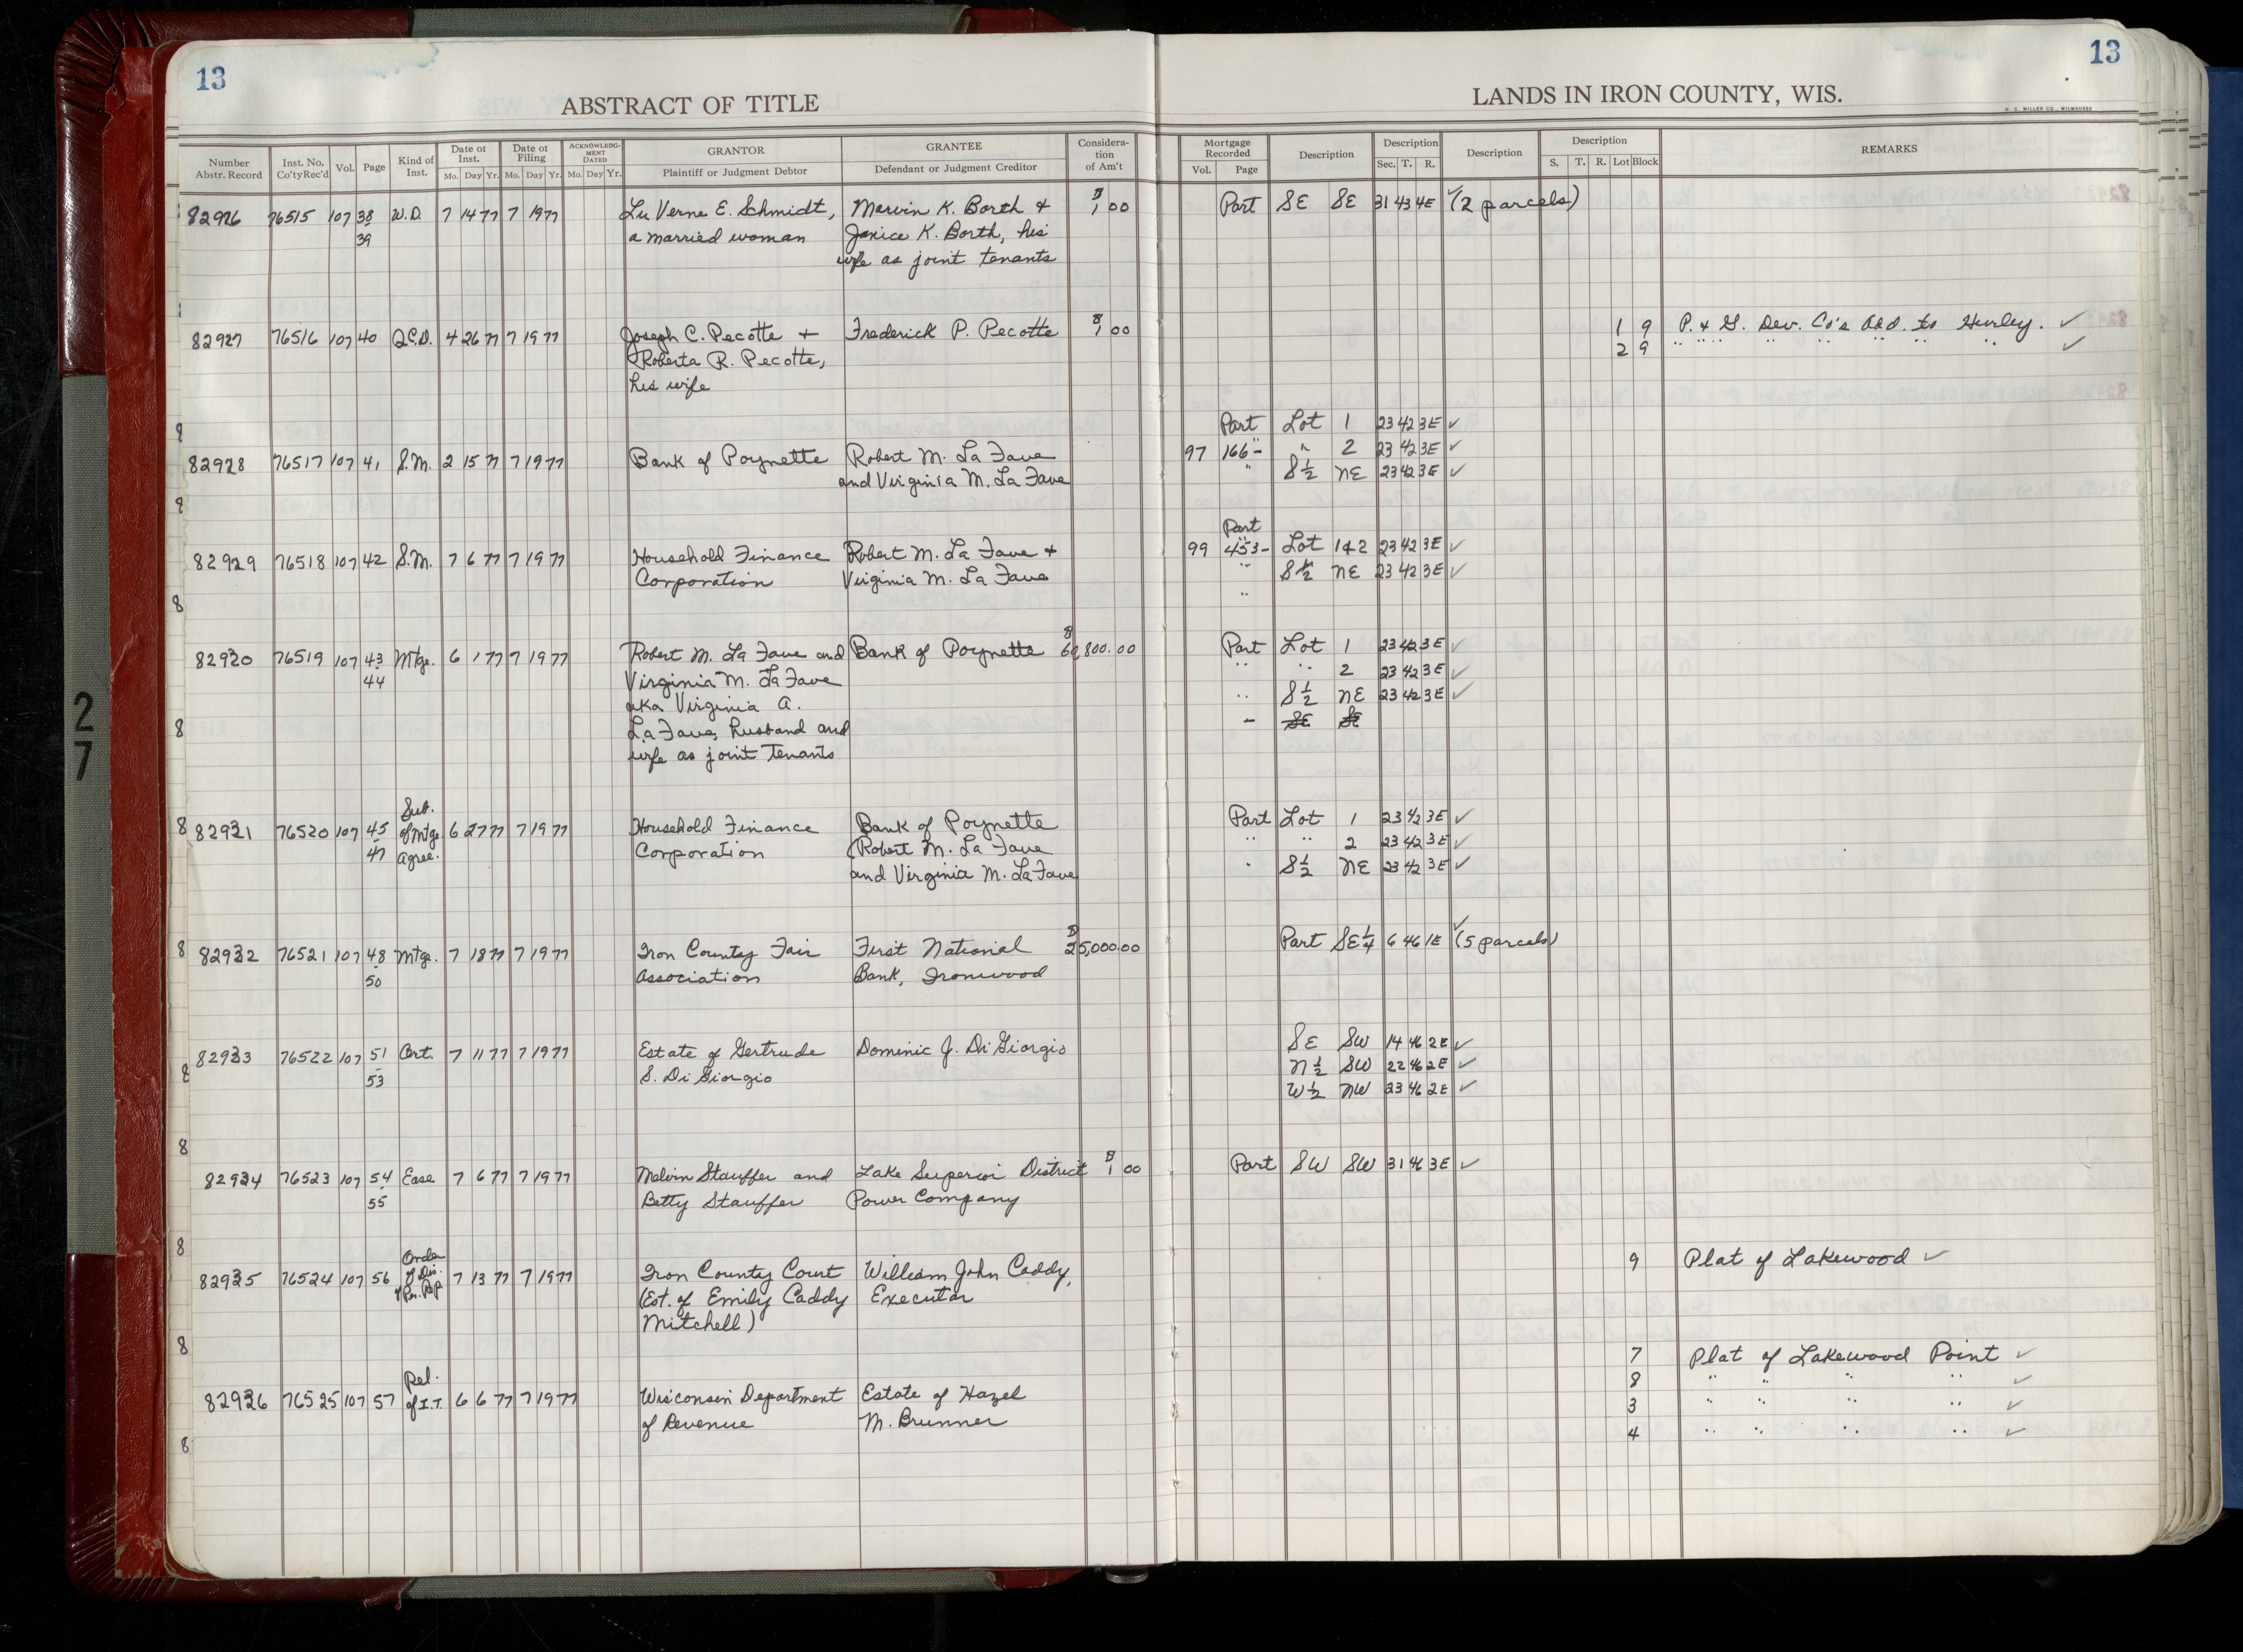 13
ABSTRACT OF TITLE
LANDS IN IRON COUNTY, WIS.
13
H. C. MILLER CO., MILWAUKEE
Number Abstr. Record Inst. No. Co'ty Rec'd Vol. Page Kind of Inst. Date of Inst. Mo. Day Yr. Date of Filing Mo. Day Yr. ACKNOWLEDGMENT DATED Mo. Day Yr. GRANTOR Plaintiff or Judgment Debtor GRANTEE Defendant or Judgment Creditor Consideration of Am't Mortgage Recorded Vol. Page Description Description Sec. T. R. Description Description S. T. R. Lot Block REMARKS
82926 76515 107 38 W.D. 7 14 77 7 19 77 Lu Verne E. Schmidt, Marvin K. Borth + $1 00 Part SE SE 31 43 4E ✓ (2 parcels)
39 a married woman Janice K. Borth, his
wife as joint tenants
82927 76516 107 40 Q.C.D. 4 26 77 7 19 77 Joseph C. Pecotte + Frederick P. Pecotte $1 00 1 9 P. & G. Dev. Co's Add. to Hurley. ✓
Roberta R. Pecotte, 2 9 " " " " " " " " ✓
his wife
Part Lot 1 23 42 3E ✓
82928 76517 107 41 S.M. 2 15 77 7 19 77 Bank of Poynette Robert M. La Fave 97 166 - " " 2 23 42 3E ✓
and Virginia M. La Fave " S½ NE 23 42 3E ✓
Part
82929 76518 107 42 S.M. 7 6 77 7 19 77 Household Finance Robert M. La Fave + 99 453 - Lot 1&2 23 42 3E ✓
Corporation Virginia M. La Fave " S½ NE 23 42 3E ✓
"
82930 76519 107 43 Mtge. 6 1 77 7 19 77 Robert M. La Fave and Bank of Poynette $ 800.00 Part Lot 1 23 42 3E ✓
44 Virginia M. La Fave " " 2 23 42 3E ✓
aka Virginia A. " S½ NE 23 42 3E ✓
La Fave, husband and - SE SE
wife as joint tenants
Sub.
82931 76520 107 45 of Mtge 6 27 77 7 19 77 Household Finance Bank of Poynette Part Lot 1 23 42 3E ✓
47 Agree. Corporation (Robert M. La Fave " " 2 23 42 3E ✓
and Virginia M. La Fave " S½ NE 23 42 3E ✓
82932 76521 107 48 Mtge. 7 18 77 7 19 77 Iron County Fair First National $25,000.00 Part SE¼ 6 46 1E ✓ (5 parcels)
50 Association Bank, Ironwood
82933 76522 107 51 Cert. 7 11 77 7 19 77 Estate of Gertrude Dominic J. Di Giorgio SE SW 14 46 2E ✓
53 S. Di Giorgio N½ SW 22 46 2E ✓
W½ NW 23 46 2E ✓
82934 76523 107 54 Ease 7 6 77 7 19 77 Melvin Stauffer and Lake Superior District $1 00 Part SW SW 31 46 3E ✓
55 Betty Stauffer Power Company
Order
82935 76524 107 56 of Dis. 7 13 77 7 19 77 Iron County Court William John Caddy, 9 Plat of Lakewood ✓
of Per. Rep. (Est. of Emily Caddy Executor
Mitchell)
7 Plat of Lakewood Point ✓
Rel. 8 " " " " ✓
82936 76525 107 57 of I.T. 6 6 77 7 19 77 Wisconsin Department Estate of Hazel 3 " " " " ✓
of Revenue M. Brunner 4 " " " " ✓
27